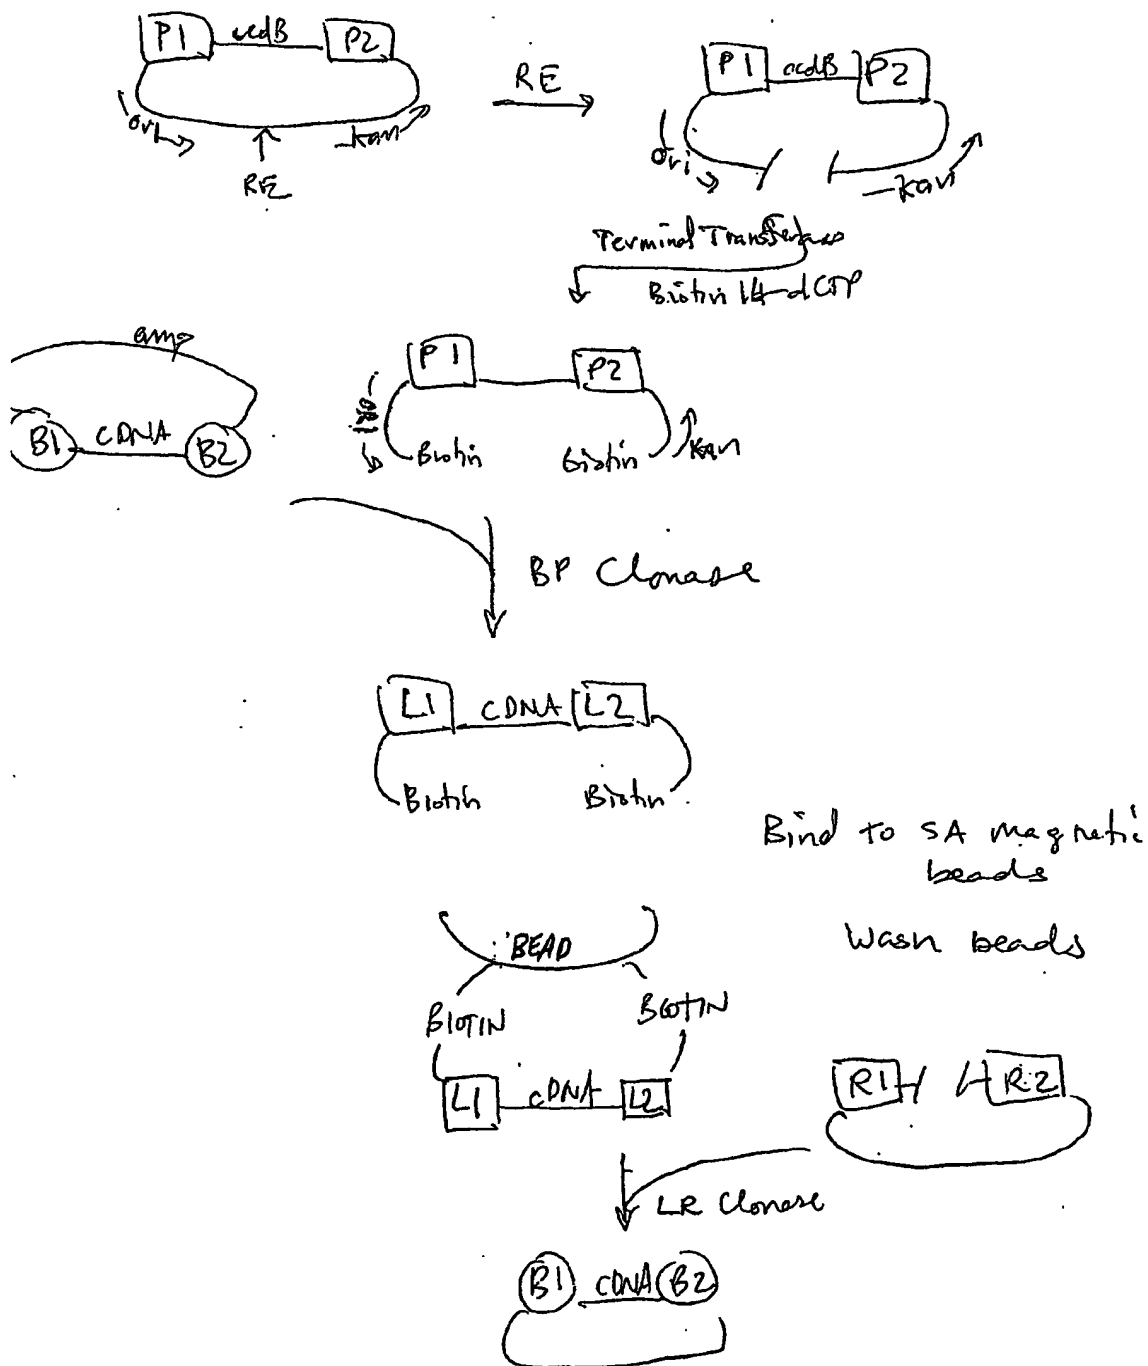 P1 ccdB P2
ori
kan
RE
RE
P1 ccdB P2
ori
kan
Terminal Transferase
Biotin 14-dCTP
amp
B1 cDNA B2
P1 P2
ORI
Biotin Biotin
Kan
BP Clonase
L1 cDNA L2
Biotin Biotin
Bind to SA magnetic
beads
Wash beads
BEAD
BIOTIN BIOTIN
L1 cDNA L2
R1 R2
LR Clonase
B1 cDNA B2